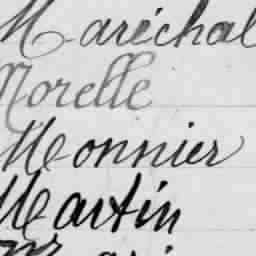 Maréchal
Morelle
Monnier
Martin